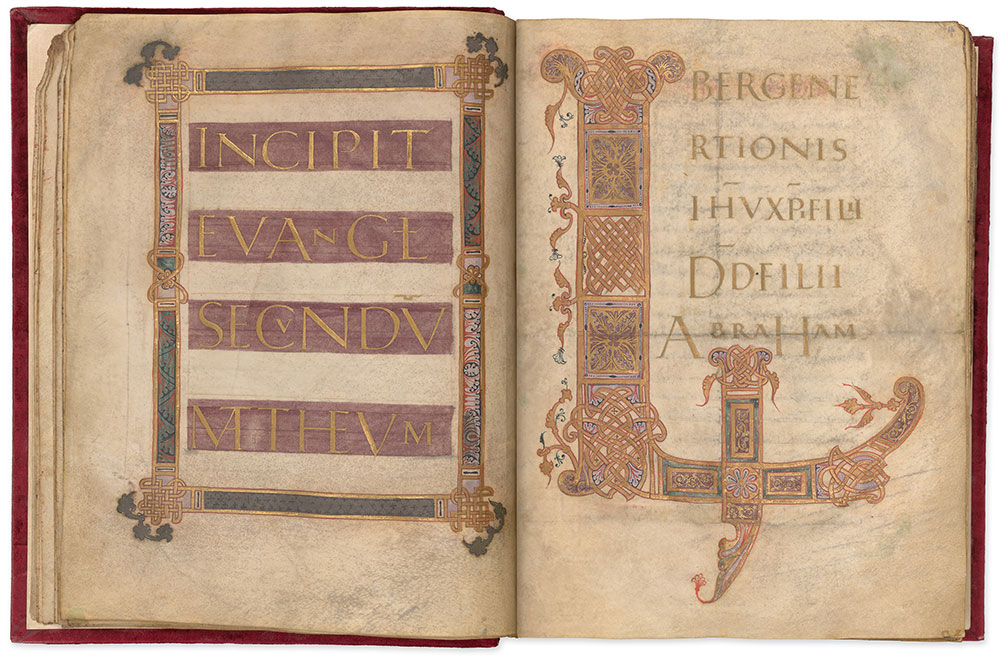 INCIPIT
EVANGŁ
SECVNDV̄
MATTHEVM
LIBERGENE
RATIONIS
IH̄VXP̄IFILII
D̄D·FILII
ABRAHAM